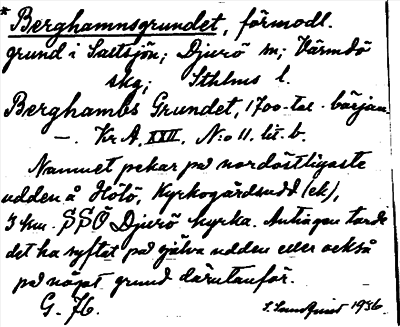 * Berghamnsgrundet, förmodl.
grund i Saltsjön; Djurö sn; Värmdö
skg; Sthlms l.
Berghambs Grundet, 1700-tal början
—. Kr A. XXII. N:o 11. lit. b.
Namnet pekar på nordöstligaste
udden å Hölö, Kyrkogårdsudd (ek),
3 km SSO Djurö kyrka. Antagen torde
det ha syftat på själva udden eller också
på något grund därutanför.
G. 76. 1936